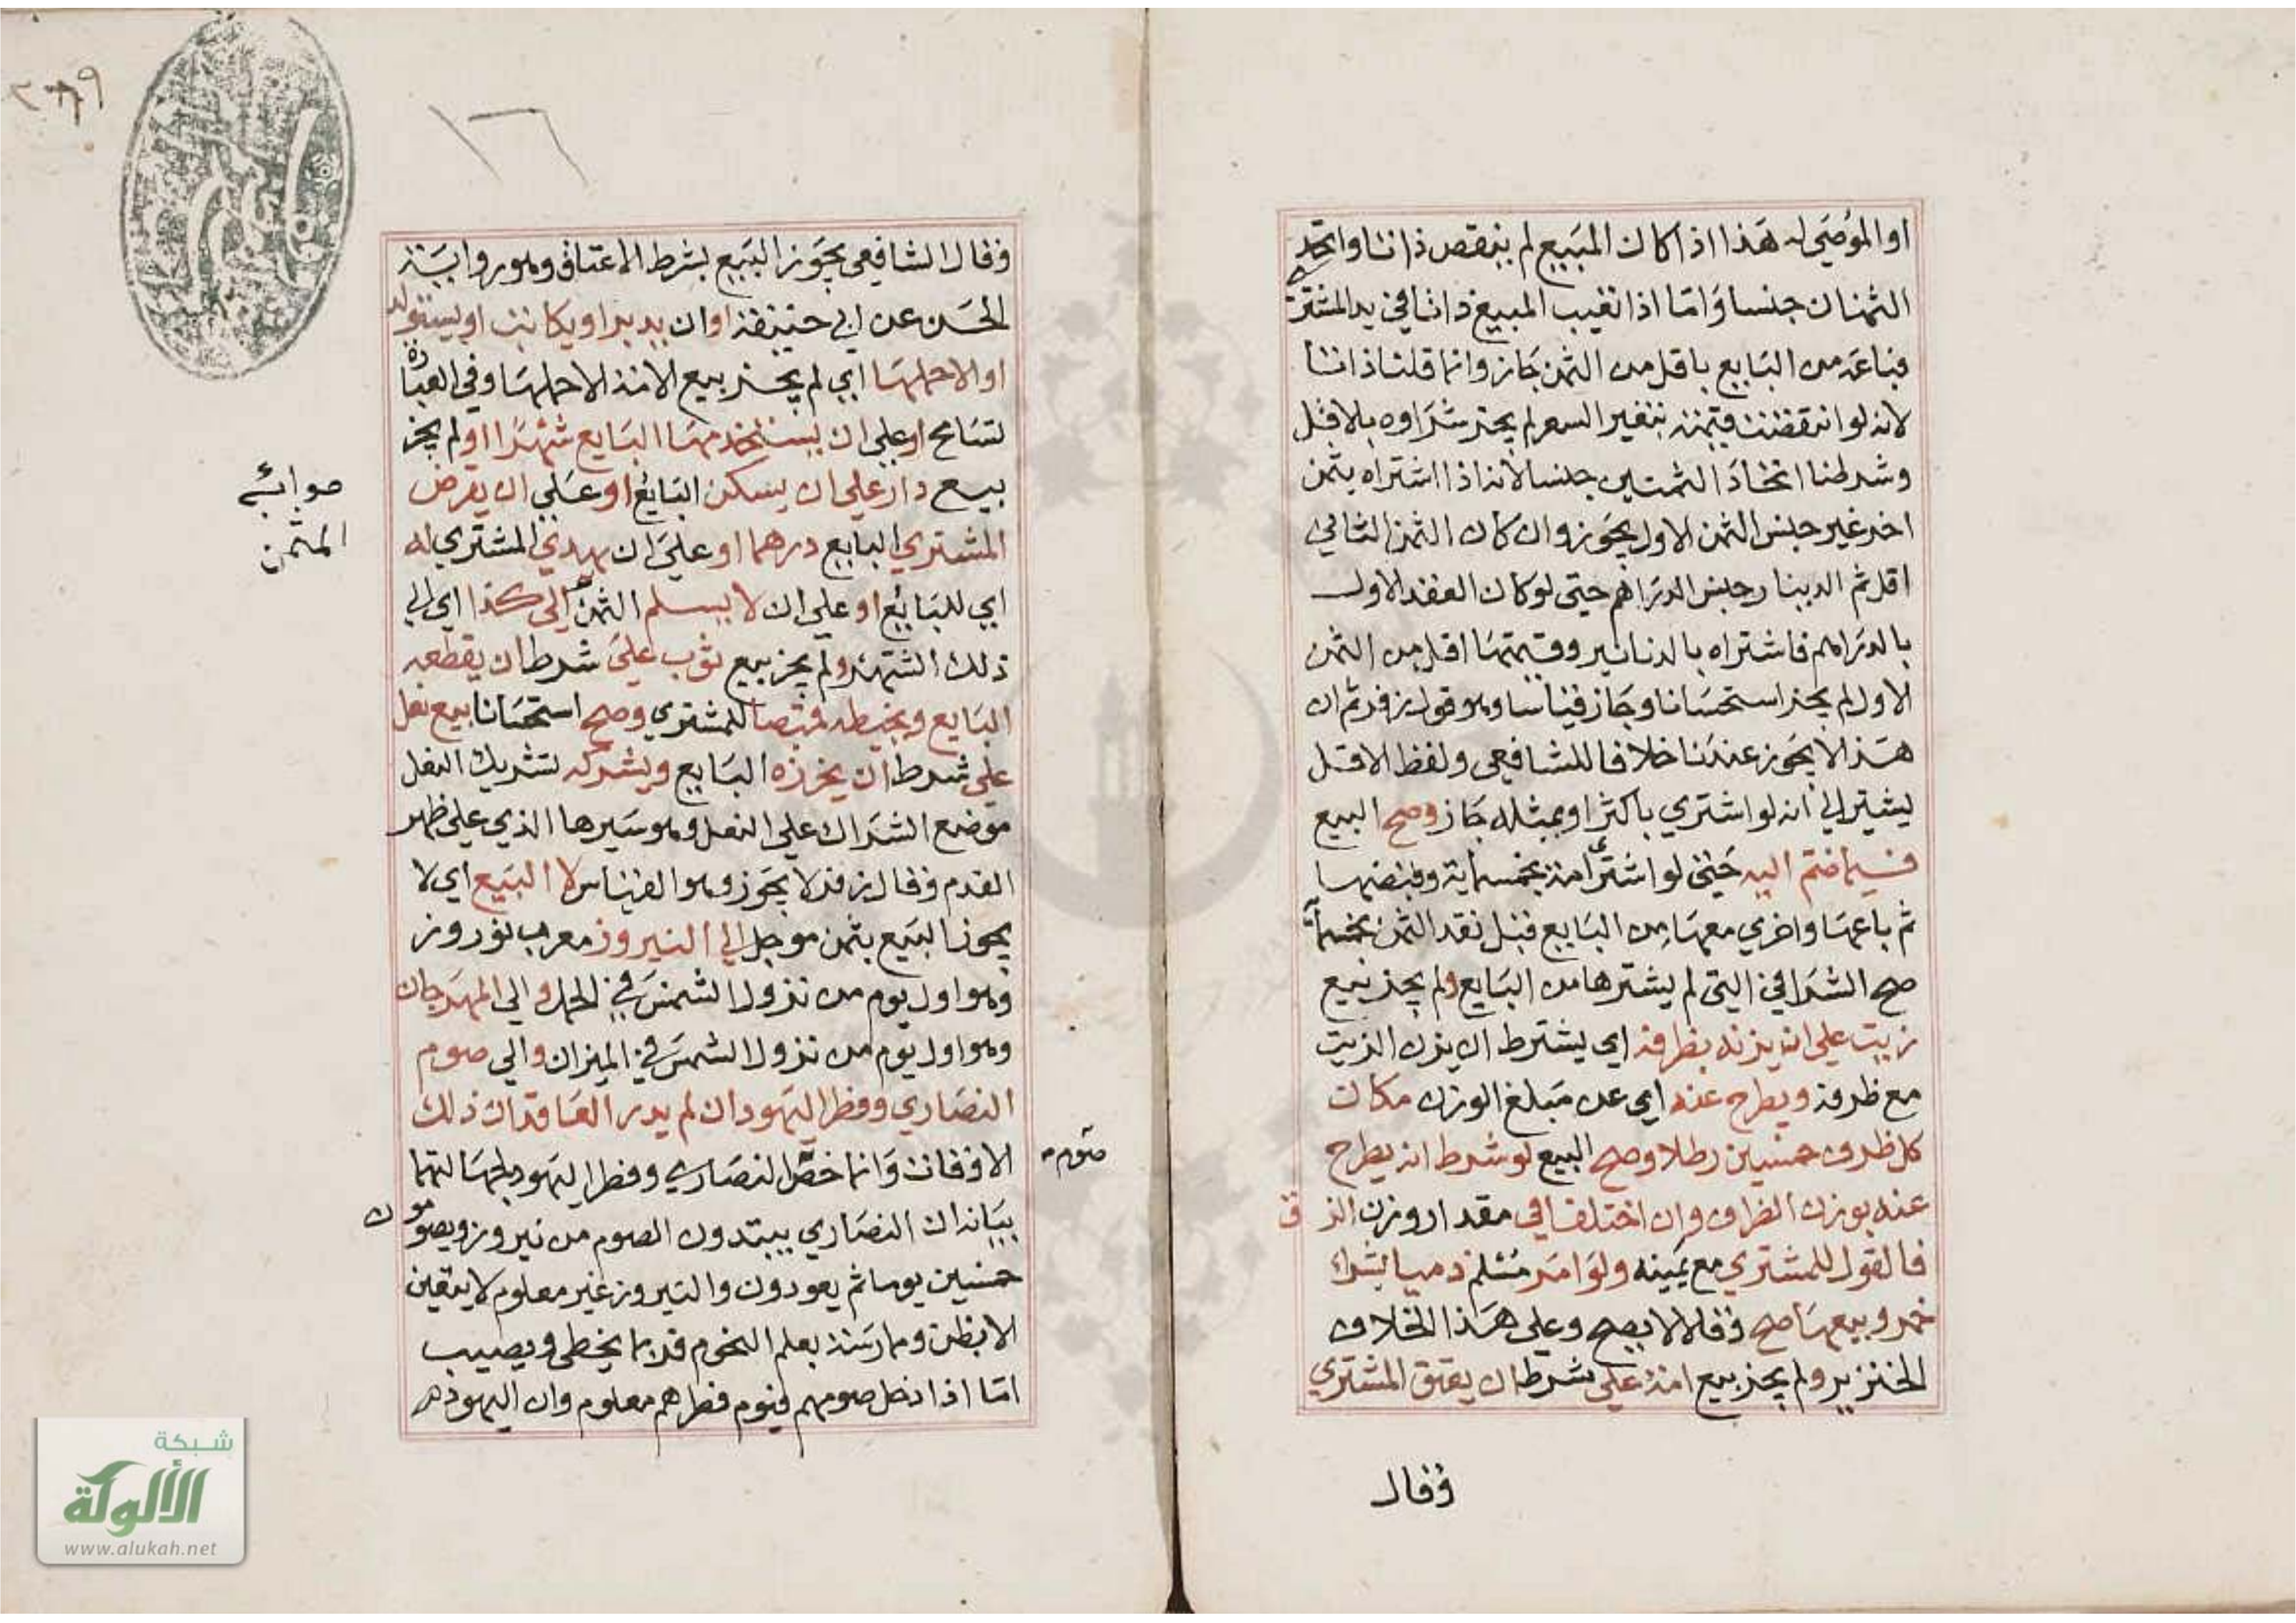 او الموصى له هذا اذا كان المبيع لم ينقص ذاتا واتحد
الثمنان جنسا واما اذا تعيب المبيع ذاتا في يد المشتري
فباعه من البايع باقل من الثمن جاز وانما قلنا ذاتا
لانه لو انتقضت قيمته بتغير السعر لم يجز شراوه بالاقل
وشرطنا اتحاد الثمنين جنسا لانه اذا اشتراه بثمن
اخر غير جنس الثمن الاول يجوز وان كان الثمن الثاني
اقل ثم الدينار جنس الدراهم حتى لو كان العقد الاول
بالدراهم فاشتراه بالدنانير وقيمتها اقل من الثمن
الاول لم يجز استحسانا وجاز قياسا وهو قول زفر ثم ان
هذا لا يجوز عندنا خلافا للشافعي ولفظ الاقل
يشير الي انه لو اشتري باكثر او بمثله جاز وصح البيع
فيما ضم اليه حتى لو اشترى امة بخمسماية وقبضها
ثم باعها واخري معها من البايع قبل نقد الثمن بخمسماية
صح الشرا في التي لم يشترها من البايع ولم يجز بيع
زيت علي ان يزنه بظرفه اي يشترط ان يزن الزيت
مع ظرفه ويطرح عنه اي عن مبلغ الوزن مكان
كل ظرف خمسين رطلا وصح البيع لو شرط ان يطرح
عنه بوزن الظرف وان اختلفا في مقدار وزن الزق
فالقول للمشتري مع يمينه ولو امر مسلم ذميا بشراء
خمر وبيعها صح وقالا لا يصح وعلي هذا الخلاف
الخنزير ولم يجز بيع امة علي شرط ان يعتق المشتري
وقال
٢٨٩
١٦
وقال الشافعي يجوز البيع بشرط الاعتاق وهو رواية
الحسن عن ابي حنيفة او ان يدبر او يكاتب او يستولد
او الا حملها اي لم يجز بيع الامة الا حملها وفي العبارة
تسامح او علي ان يستخدمها البايع شهرا او لم يجز
بيع دار علي ان يسكن البايع او علي ان يقرض
المشتري البايع درهما او علي ان يهدي المشتري له
اي للبايع او علي ان لا يسلم الثمن الى كذا اي الي
ذلك الشهر ولم يجز بيع ثوب علي شرط ان يقطعه
البايع ويخيطه قميصا للمشتري وصح استحسانا بيع نعل
علي شرط ان يخرزه البايع ويشركه تشريك النعل
موضع الشراك علي النعل وهو سيرها الذي علي ظهر
القدم وقال زفر لا يجوز وهو القياس لا البيع اي لا
يجوز البيع بثمن موجل الي النيروز معرب نوروز
وهو اول يوم من نزول الشمس في الحمل والي المهرجان
وهو اول يوم من نزول الشمس في الميزان والي صوم
النصاري وفطر اليهود ان لم يدر العاقدان ذلك
الاوقات وانما خص النصاري وفطر اليهود لجهالتها
بيانه ان النصاري يبتدون الصوم من نيروز ويصومون
خمسين يوما ثم يعودون والنيروز غير معلوم لا يتعين
الا بظن وممارسة بعلم النجوم فربما يخطي ويصيب
اما اذا دخل صومهم فيوم فطرهم معلوم وان اليهود
صوابه
المثمن
صوم
شبكة
الألوكة
www.alukah.net